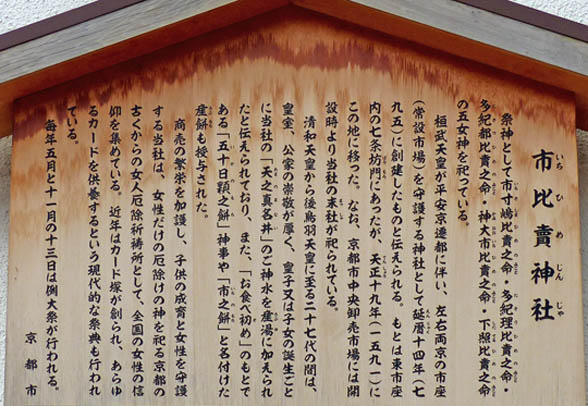 市比賣神社
いちひめじんじゃ
祭神として市寸嶋比賣之命・多紀理比賣之命・
多紀都比賣之命・神大市比賣之命・下照比賣之命
の五女神を祀っている。
桓武天皇が平安京遷都に伴い、左右両京の市座
(常設市場)を守護する神社として延暦十四年(七
九五)に創建したものと伝えられる。もとは東市座
内の七条坊門にあったが、天正十九年(一五九一)に
この地に移った。なお、京都市中央卸売市場には開
設時より当社の末社が祀られている。
清和天皇から後鳥羽天皇に至る二十七代の間は、
皇室、公家の崇敬が厚く、皇子又は子女の誕生ごと
に当社の「天之真名井」のご神水を産湯に加えられ
たと伝えられており、また、「お食べ初め」のもとで
ある「五十日顆之餅」神事や「市之餅」と名付けた
産餅も授与された。
商売の繁栄を加護し、子供の成育と女性を守護
する当社は、女性だけの厄除けの神を祀る京都の
古くからの女人厄除祈祷所として、全国の女性の信
仰を集めている。近年はカード塚が創られ、あらゆ
るカードを供養するという現代的な祭典も行われ
ている。
毎年五月と十一月の十三日は例大祭が行われる。
京都市